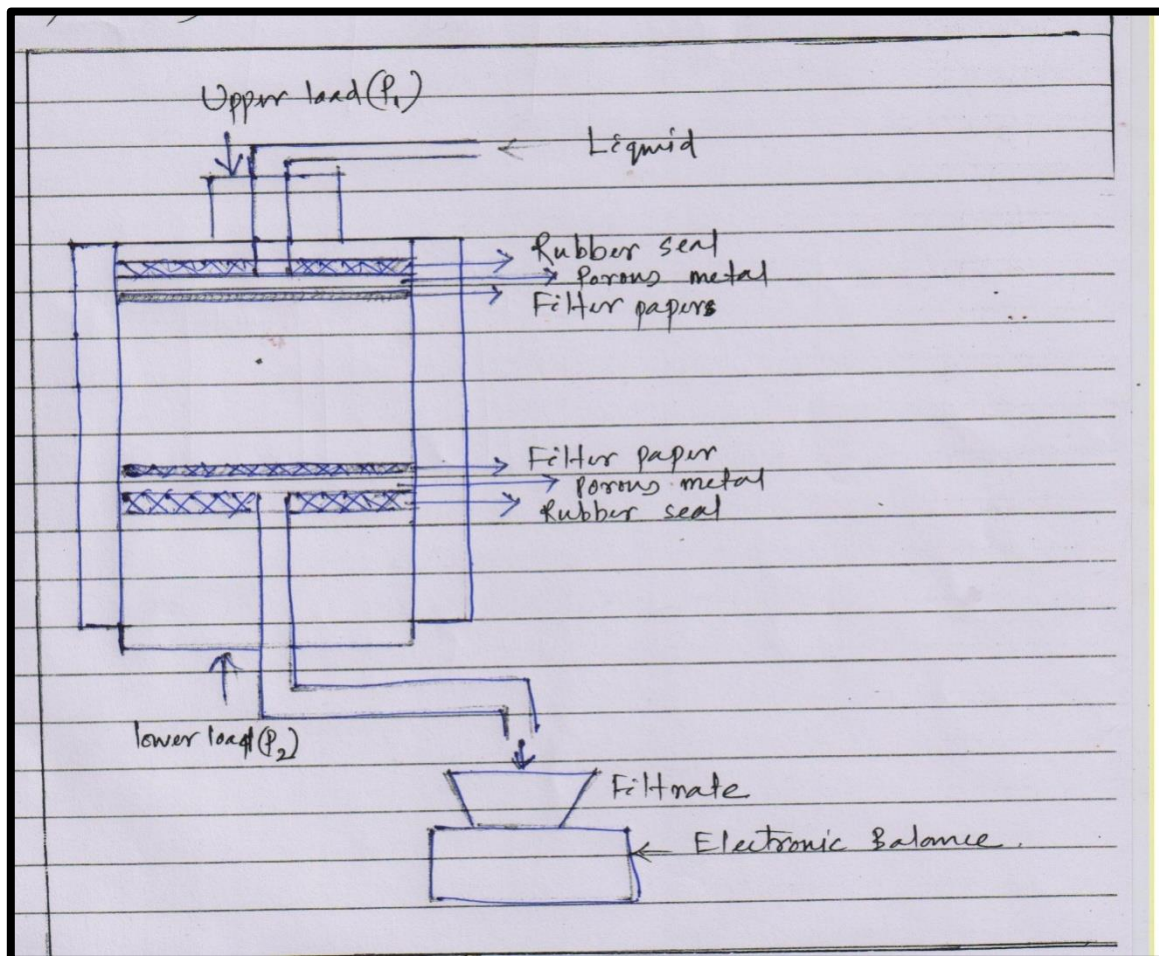 Upper load (P₁)
Liquid
Rubber seal
Porous metal
Filter papers
Filter paper
Porous metal
Rubber seal
lower load (P₂)
Filtrate
Electronic Balance.